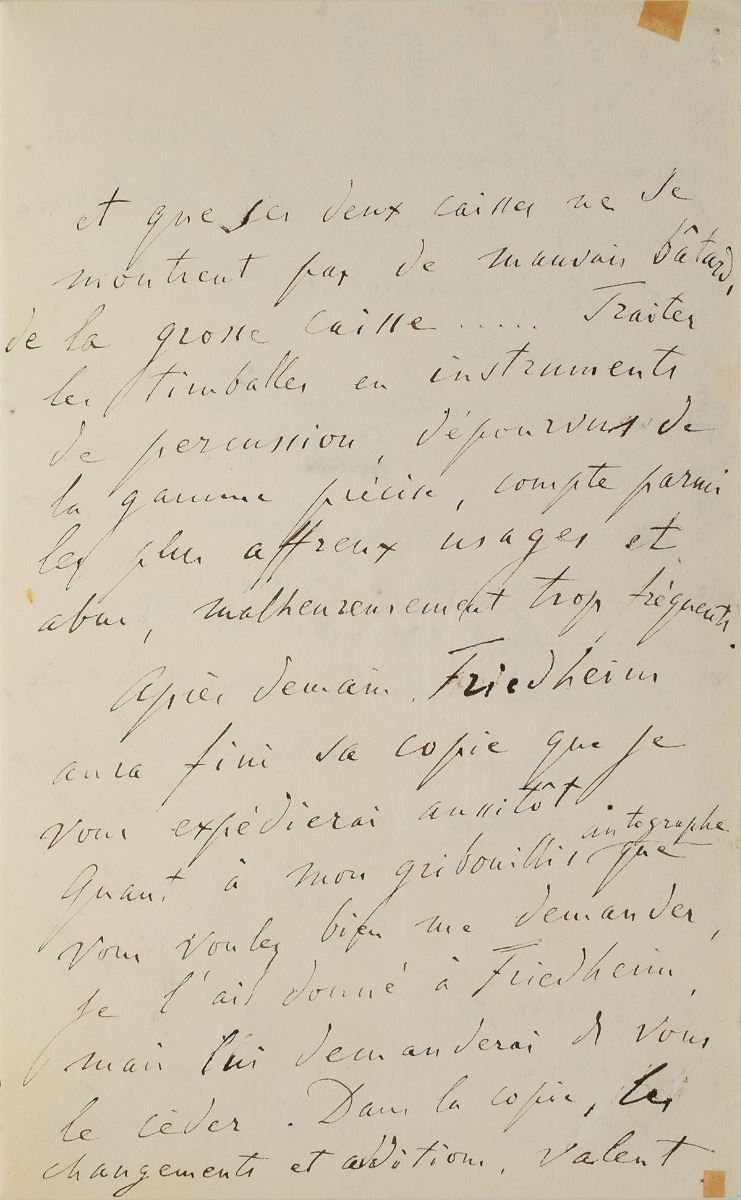 et que les deux caisses ne se
montrent pas de mauvais bâtards,
de la grosse caisse ..... Traiter
les timballes en instruments
de percussion, dépourvus de
la gamme précise, compte parmi
les plus affreux usages et
abus, malheureusement trop fréquents.
Après demain Friedheim
aura fini sa copie que je
vous expédierai aussitôt
autographe
Quant à mon gribouillis que
vous voulez bien me demander,
je l'ai donné à Friedheim,
mais lui demanderai de vous
le céder. Dans la copie, les
changements et additions, valent